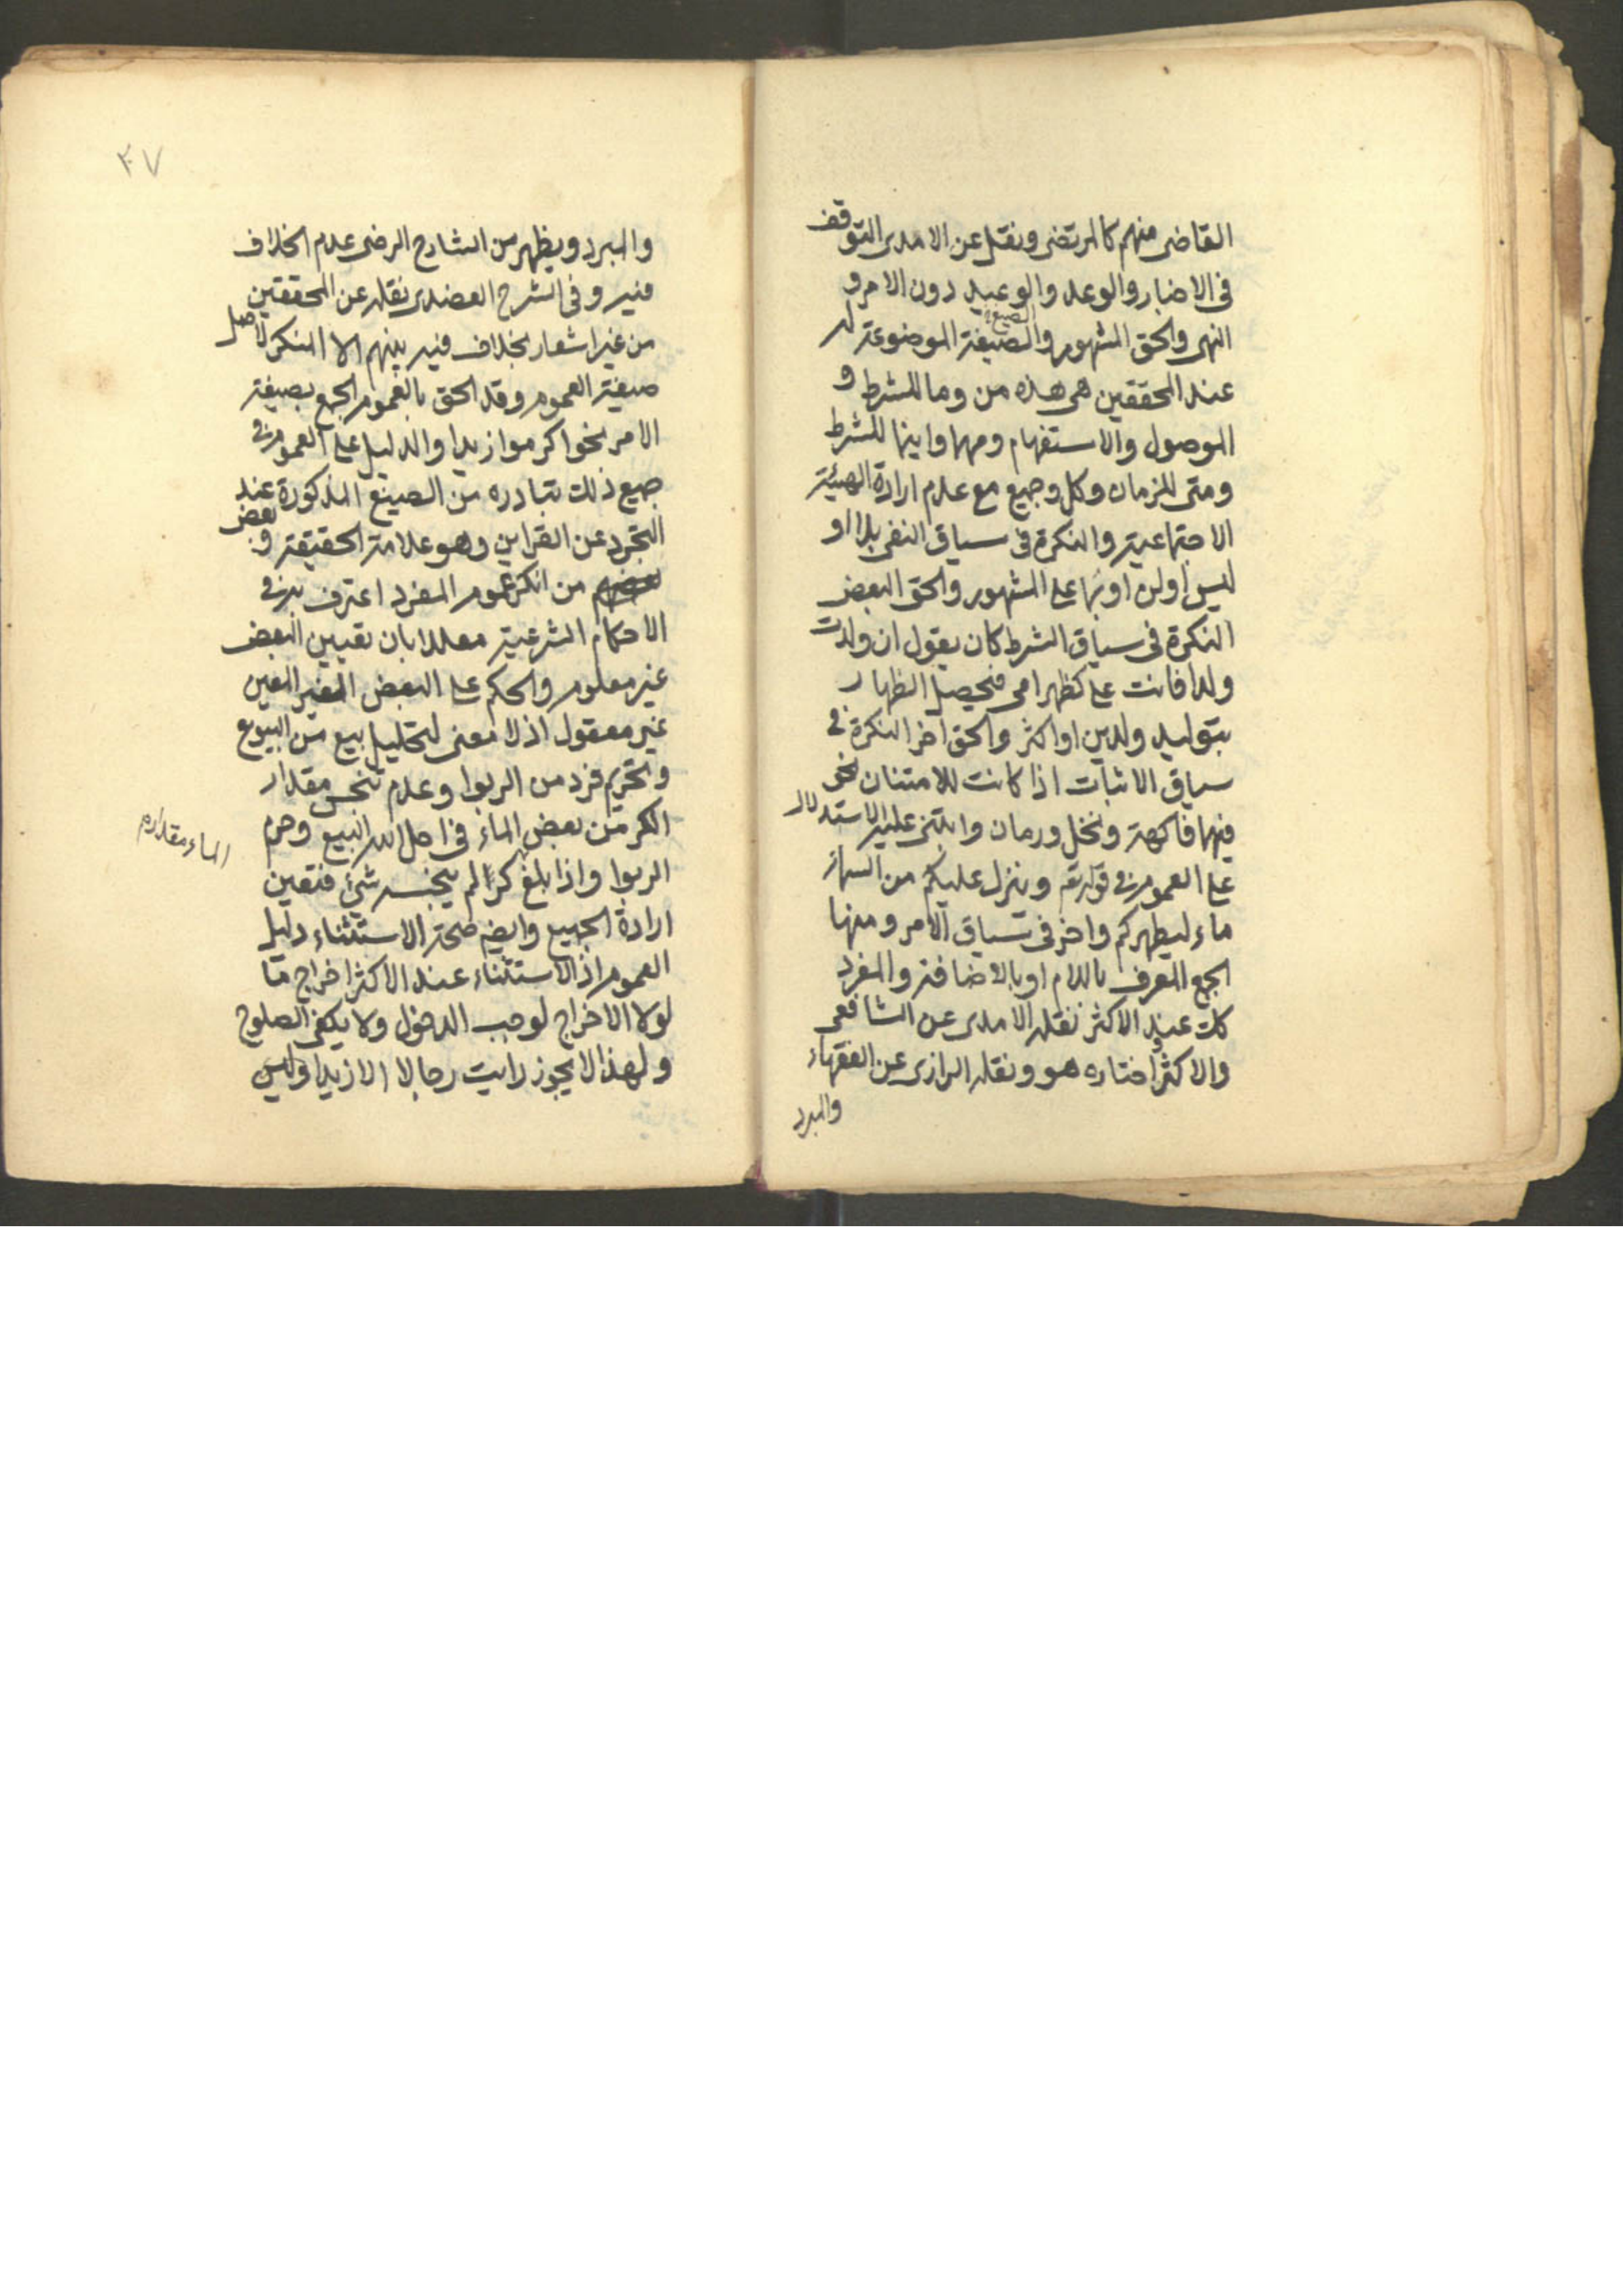 القاضى منهم كالمرتضى ونقل عن الامدى التوقف
فى الاخبار والوعد والوعيد دون الامر و
النهى والحق المشهور والصيغة الموضوعة له
الصيغ
عند المحققين هى هذه من وما للشرط و
الموصول والاستفهام ومهما واينما للشرط
ومتى للزمان وكل وجميع مع عدم ارادة الهيئة
الاجتماعية والنكرة فى سياق النفى بلا او
ليس او لن او بما على المشهور والحق البعض
النكرة فى سياق الشرط كان يقول ان ولدت
ولدا فانت على كظهر امى فيحصل الظهار
بتوليد ولدين او اكثر والحق اخر النكرة فى
سياق الاثبات اذا كانت للامتنان نحو
فيها فاكهة ونخل ورمان وابتنى عليه الاستدلال
على العموم فى قوله تع وينزل عليكم من السماء
ماء ليطهركم واخر فى سياق الامر ومنها
الجمع المعرف باللام او بالاضافة والمفرد
كك عند الاكثر نقله الامدى عن الشافعى
والاكثر واختاره هو ونقله الرازى عن الفقهاء
والمبرد
٤٧
والمبرد ويظهر من الشارح الرضى عدم الخلاف
فيه وفى الشرح العضدى نقله عن المحققين
من غير اشعار بخلاف فيه بينهم الا المنكر لاصل
صيغة العموم وقد الحق بالعموم الجمع بصيغة
الامر نحو اكرموا زيدا والدليل على العموم فى
جميع ذلك تبادره من الصيغ المذكورة عند
التجرد عن القراين وهو علامة الحقيقة و بعض
من انكر عموم المفرد اعترف به فى
الاحكام الشرعية معللا بان تعيين البعض
غير معلوم والحكم على البعض الغير المعين
غير معقول اذ لا معنى لتحليل بيع من البيوع
وتحريم فرد من الربوا وعدم تنجس مقدار
الكر من بعض الماء فى احل الله البيع وحرم
الماء مقداره
الربوا واذا بلغ كرا لم ينجسه شئ فتعين
ارادة الجميع وايضم صحة الاستثناء دليل
العموم اذ الاستثناء عند الاكثر اخراج ما
لولا الاخراج لوجب الدخول ولا يكفى الصلوح
ولهذا لا يجوز رايت رجالا الا زيدا وليس